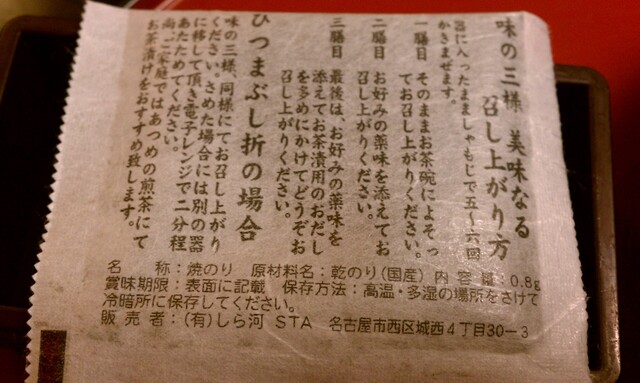 味の三様 美味なる
召し上がり方
器に入ったまましゃもじで五〜六回
かきまぜます。
一膳目 そのままお茶碗によそっ
てお召し上がりください。
二膳目 お好みの薬味を添えてお
召し上がりください。
三膳目 最後は、お好みの薬味を
添えてお茶漬用のおだし
を多めにかけてどうぞお
召し上がりください。
ひつまぶし折の場合
味の三様、同様にてお召し上がり
ください。さめた場合には別の器
に移して頂き電子レンジで二分程
あたためてください。
尚、ご家庭ではあつめの煎茶にて
お茶漬けをおすすめ致します。
名 称:焼のり 原材料名:乾のり(国産) 内 容 量:0.8g
賞味期限:表面に記載 保存方法:高温・多湿の場所をさけて
冷暗所に保存してください。
販 売 者:(有)しら河 STA 名古屋市西区城西4丁目30-3